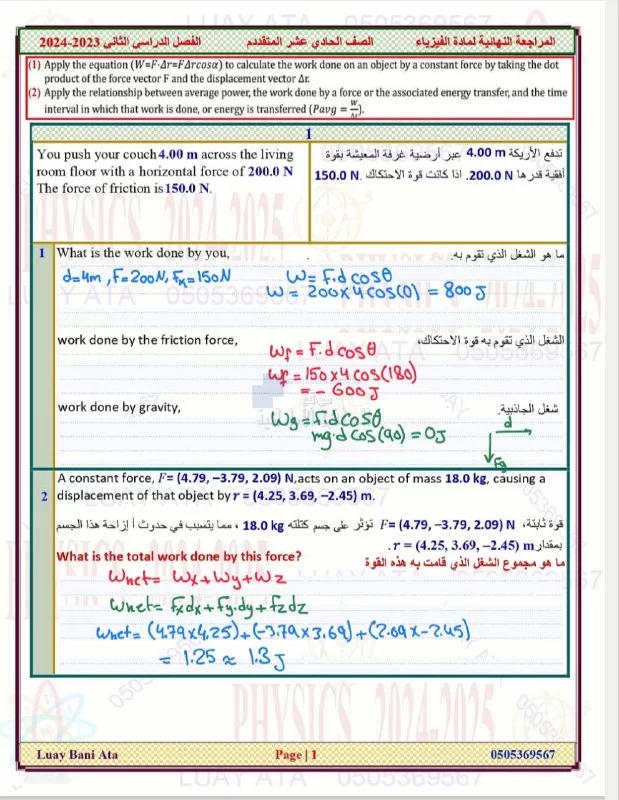 LUAY ATA 0505369567
المراجعة النهائية لمادة الفيزياء الصف الحادي عشر المتقدم الفصل الدراسي الثاني 2023-2024
(1) Apply the equation (W=F·Δr=FΔrcosα) to calculate the work done on an object by a constant force by taking the dot
product of the force vector F and the displacement vector Δr.
(2) Apply the relationship between average power, the work done by a force or the associated energy transfer, and the time
interval in which that work is done, or energy is transferred (Pavg = W/Δt).
1
You push your couch 4.00 m across the living
room floor with a horizontal force of 200.0 N
The force of friction is 150.0 N.
تدفع الأريكة 4.00 m عبر أرضية غرفة المعيشة بقوة
أفقية قدرها 200.0 N. اذا كانت قوة الاحتكاك 150.0 N.
1 What is the work done by you,
ما هو الشغل الذي تقوم به.
d=4m, F=200N, Fk=150N
W= F.d cosθ
W= 200x4 cos(0) = 800J
work done by the friction force,
الشغل الذي تقوم به قوة الاحتكاك،
Wf = F.d cosθ
Wf = 150x4 cos(180)
= - 600J
work done by gravity,
شغل الجاذبية.
Wg = F.d cosθ
mg.d cos(90) = 0J
d
Fg
A constant force, F= (4.79, −3.79, 2.09) N,acts on an object of mass 18.0 kg, causing a
2 displacement of that object by r = (4.25, 3.69, −2.45) m.
قوة ثابتة، F= (4.79, −3.79, 2.09) N تؤثر على جسم كتلته 18.0 kg ، مما يتسبب في حدوث أ إزاحة هذا الجسم
بمقدار r = (4.25, 3.69, −2.45) m.
What is the total work done by this force?
ما هو مجموع الشغل الذي قامت به هذه القوة
Wnet= Wx+Wy+Wz
Wnet= Fxdx+Fy.dy+Fzdz
Wnet= (4.79x4.25)+(-3.79x3.69)+(2.09x-2.45)
= 1.25 ≈ 1.3J
PHYSICS 2024-2025
Luay Bani Ata Page | 1 0505369567
LUAY ATA 0505369567